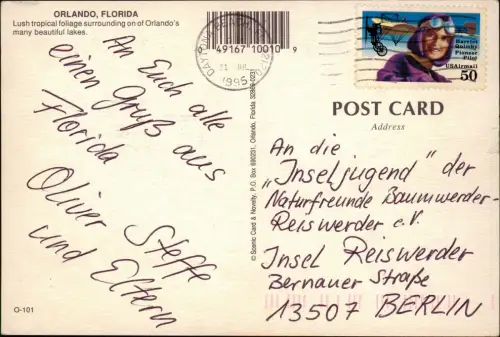 ORLANDO, FLORIDA
Lush tropical foliage surrounding on of Orlando's
many beautiful lakes.
0 49167 10010 9
DAYTONA BEACH
1995
Harriet
Quimby
Pioneer
Pilot
USAirmail
50
POST CARD
Address
An Euch alle
einen Gruß aus
Florida
Oliver Steffe
und Eltern
© Scenic Card & Novelty, P.O. Box 690231, Orlando, Florida
An die
"Inseljugend" der
Naturfreunde Baumwerder-
Reiswerder e.V.
Insel Reiswerder
Bernauer Straße
13507 BERLIN
O-101